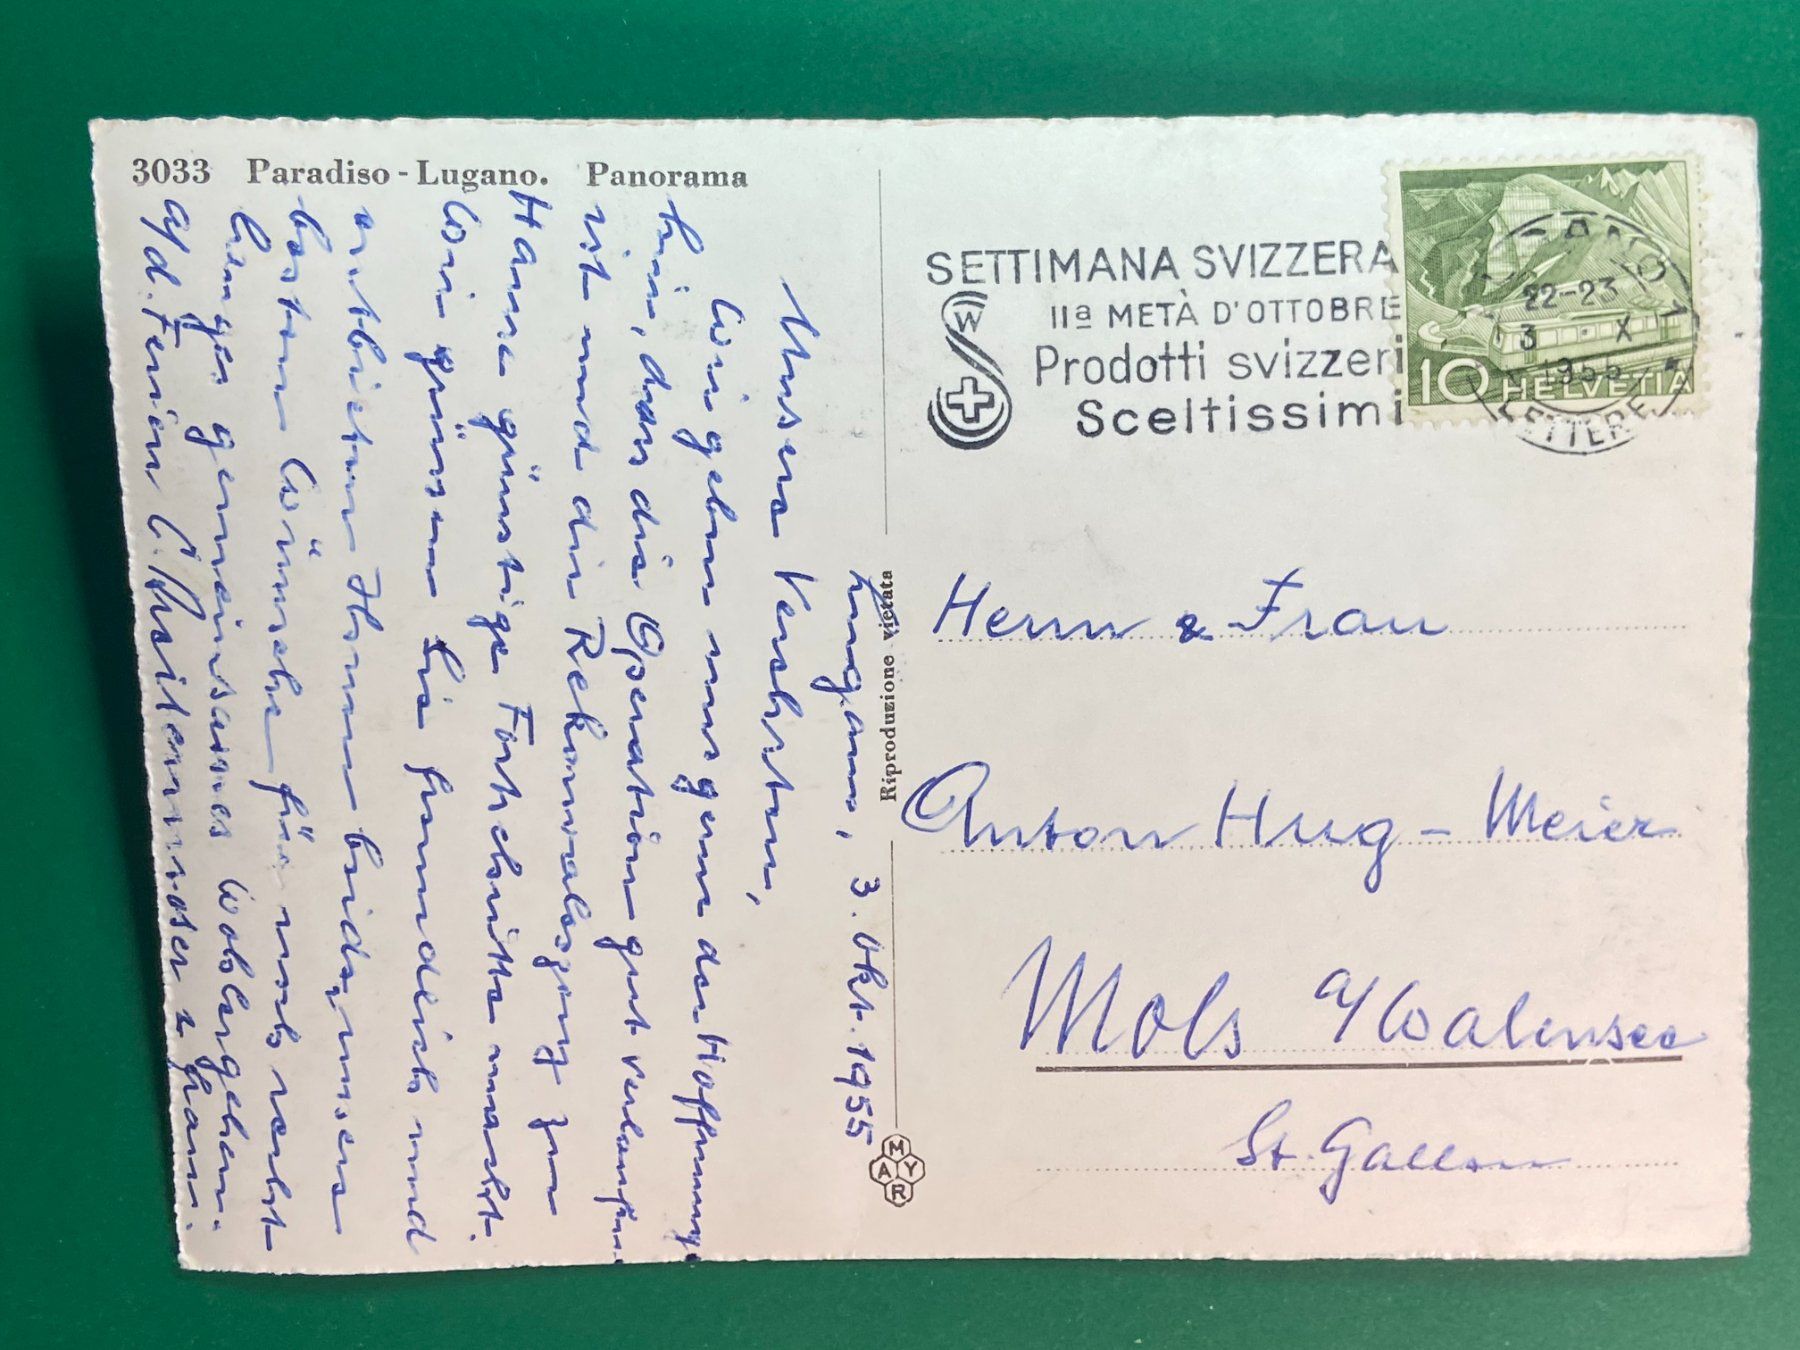 3033 Paradiso - Lugano. Panorama
Lugano, 3. Okt. 1955
Unsere Verehrten,
Wir geben uns gerne der Hoffnung
hin, dass die Operation gut verlaufen
ist und die Rekonvaleszenz zur
Hause günstige Fortschritte macht.
Wir grüssen Sie freundlich und
entbieten Ihnen beiden unsere
besten Wünsche für noch recht
langes gemeinsames Wohlergehen.
a/d. Ferien
Riproduzione vietata
MAYR
SETTIMANA SVIZZERA
IIa METÀ D'OTTOBRE
Prodotti svizzeri
Sceltissimi
22-23
3 X
1955
LETTERE
10 HELVETIA
Herrn & Frau
Anton Hug - Meier
Mols a/Walensee
St. Gallen